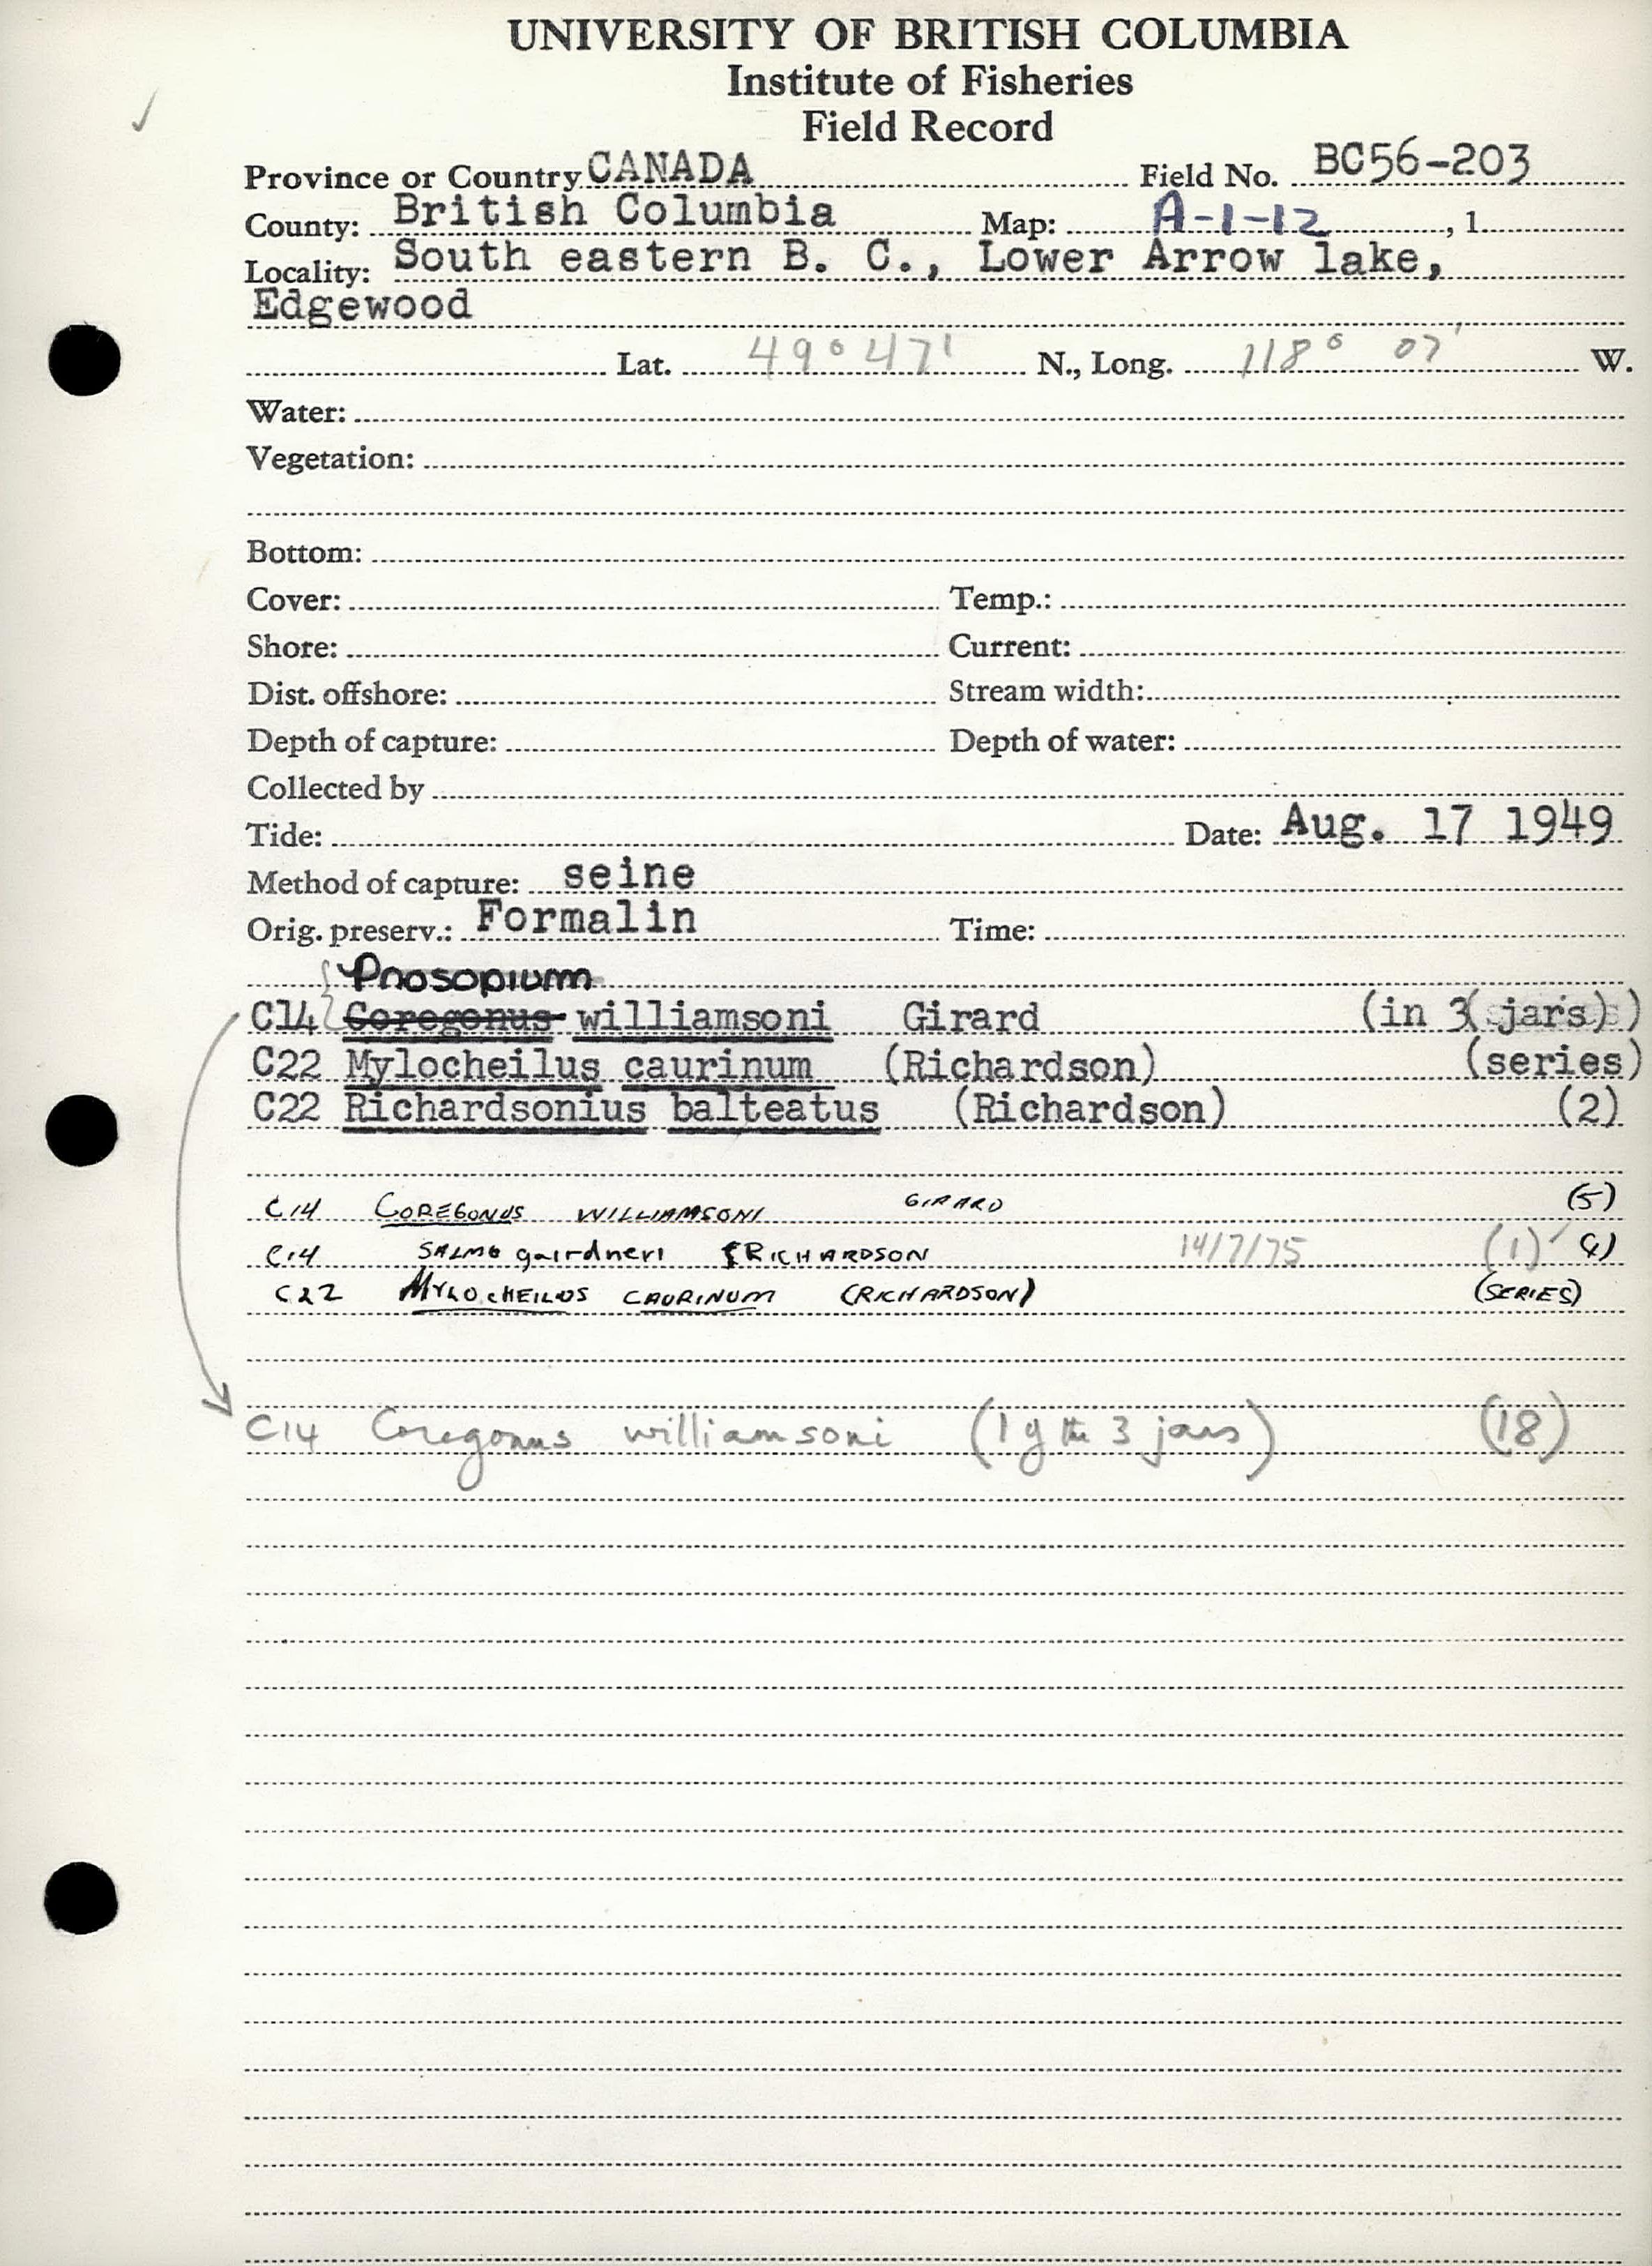 UNIVERSITY OF BRITISH COLUMBIA
Institute of Fisheries
Field Record
Province or Country CANADA Field No. BC56-203
County: British Columbia Map: A-1-12, 1
Locality: South eastern B. C., Lower Arrow lake,
Edgewood
Lat. 49° 47' N., Long. 118° 07' W.
Water:
Vegetation:
Bottom:
Cover: Temp.:
Shore: Current:
Dist. offshore: Stream width:
Depth of capture: Depth of water:
Collected by
Tide: Date: Aug. 17 1949
Method of capture: seine
Orig. preserv.: Formalin Time:
Prosopium
C14 Coregonus williamsoni Girard (in 3 jars)
C22 Mylocheilus caurinum (Richardson) (series)
C22 Richardsonius balteatus (Richardson) (2)
C14 COREGONUS WILLIAMSONI GIRARD (5)
C14 SALMO gairdneri RICHARDSON 14/7/75 (1)
C22 MYLOCHEILUS CAURINUM (RICHARDSON) (SERIES)
C14 Coregonus williamsoni (1 of the 3 jars) (18)